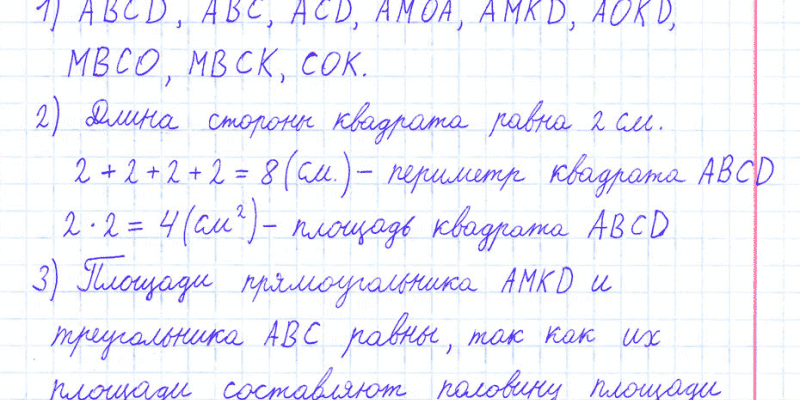 1) ABCD, ABC, ACD, AMOA, AMKD, AOKD,
MBCO, MBCK, COK.
2) Длина стороны квадрата равна 2 см.
2 + 2 + 2 + 2 = 8 (см.) – периметр квадрата ABCD
2 · 2 = 4 (см²) – площадь квадрата ABCD
3) Площади прямоугольника AMKD и
треугольника ABC равны, так как их
площади составляют половину площади